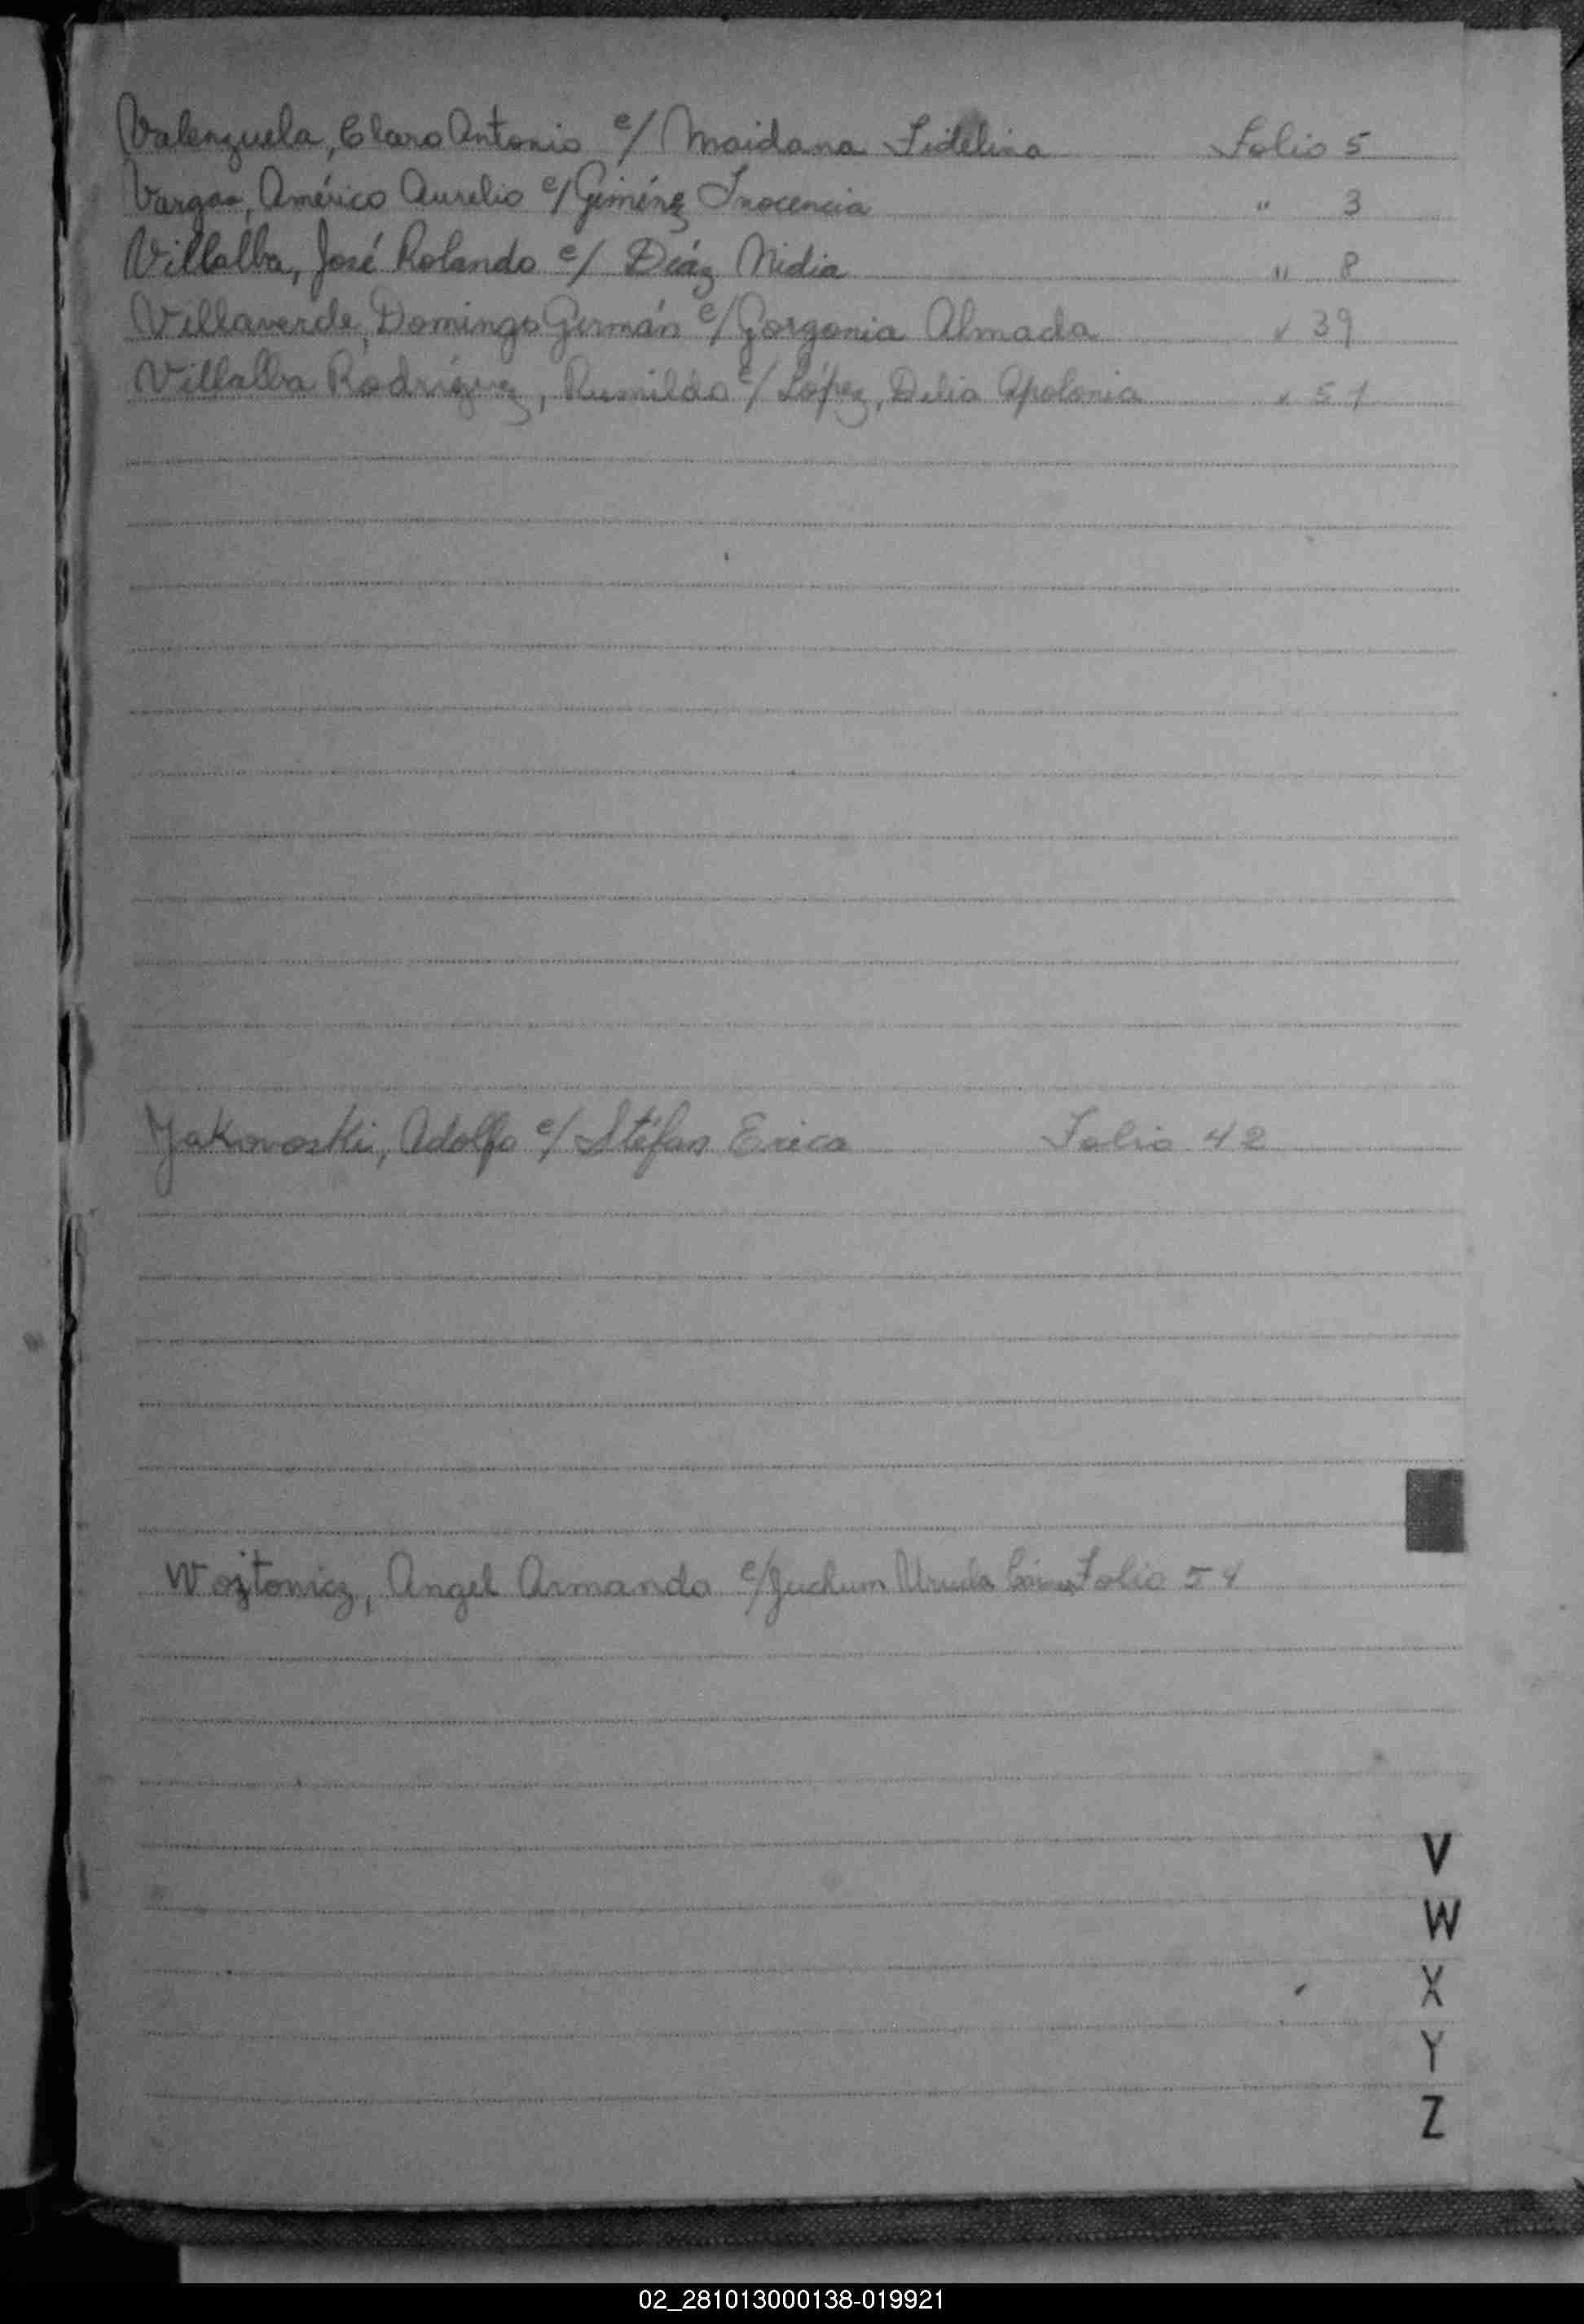 Valenzuela, Claro Antonio c/ Maidana Fidelina Folio 5
Vargas, Américo Aurelio c/ Giménez Inocencia " 3
Villalba, José Rolando c/ Díaz Nidia " 8
Villaverde, Domingo Germán c/ Gorgonia Almada " 39
Villalba Rodríguez, Rumildo c/ López, Delia Apolonia " 51
Yakowoski, Adolfo c/ Stéfan Erica Folio 42
Wojtowicz, Angel Armando c/ Juchum Folio 54
V
W
X
Y
Z
02_281013000138-019921